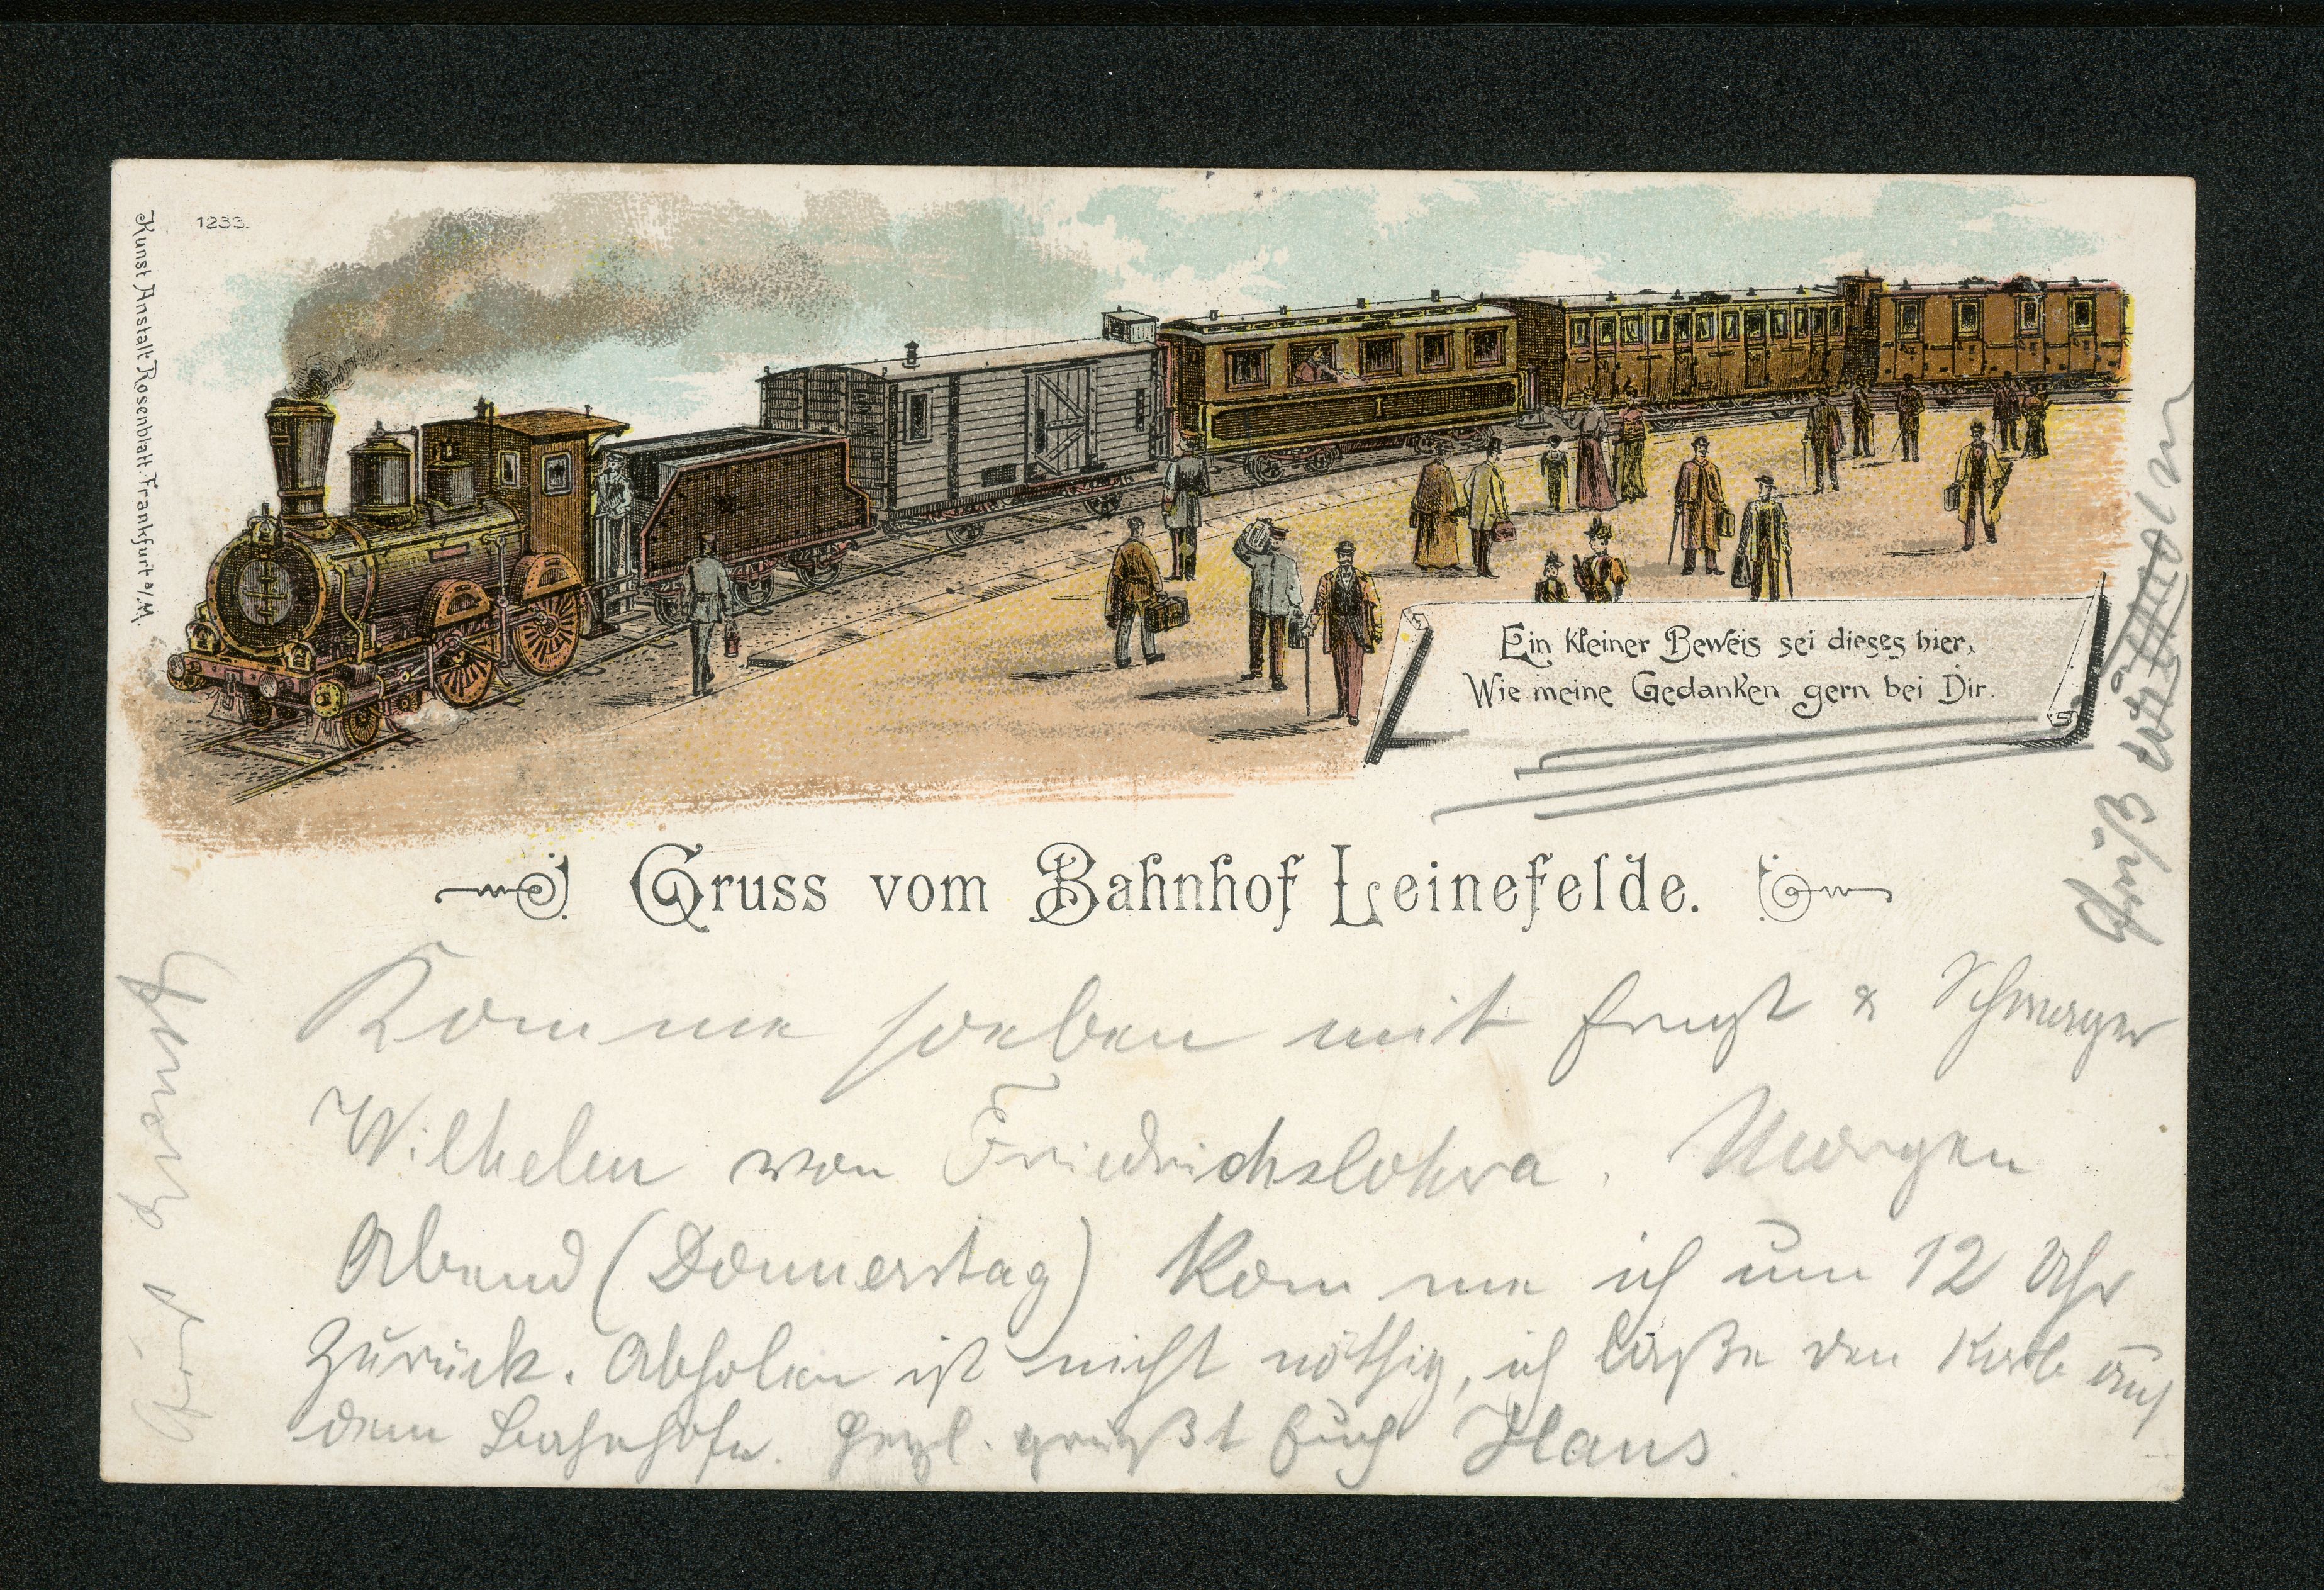 1233.
Kunst Anstalt Rosenblatt. Frankfurt a/M.
Ein kleiner Beweis sei dieses hier,
Wie meine Gedanken gern bei Dir.
Gruss vom Bahnhof Leinefelde.
Komme soeben mit Ernst & Schwager
Wilhelm von Friedrichslohra. Morgen
Abend (Donnerstag) komme ich um 12 Uhr
zurück. Abholen ist nicht nöthig, ich laße den Korb auf
dem Bahnhofe. Herzl. grüßt Euch Hans
Gruß